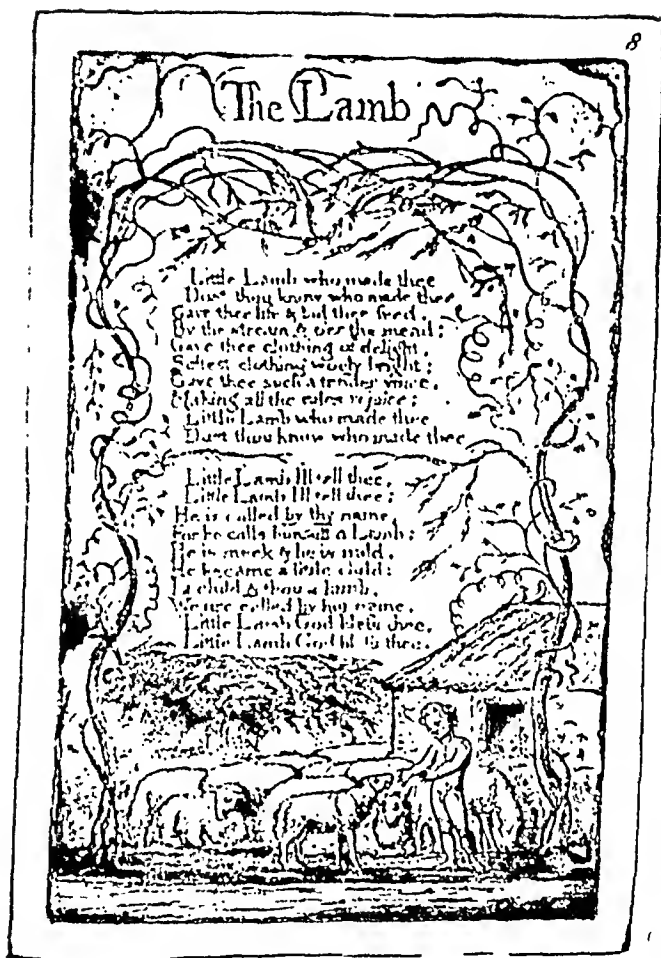 8
The Lamb
Little Lamb who made thee
Dost thou know who made thee
Gave thee life & bid thee feed.
By the stream & o'er the mead;
Gave thee clothing of delight,
Softest clothing wooly bright;
Gave thee such a tender voice,
Making all the vales rejoice;
Little Lamb who made thee
Dost thou know who made thee
Little Lamb I'll tell thee,
Little Lamb I'll tell thee;
He is called by thy name,
For he calls himself a Lamb:
He is meek & he is mild,
He became a little child:
I a child & thou a lamb,
We are called by his name.
Little Lamb God bless thee.
Little Lamb God bless thee.